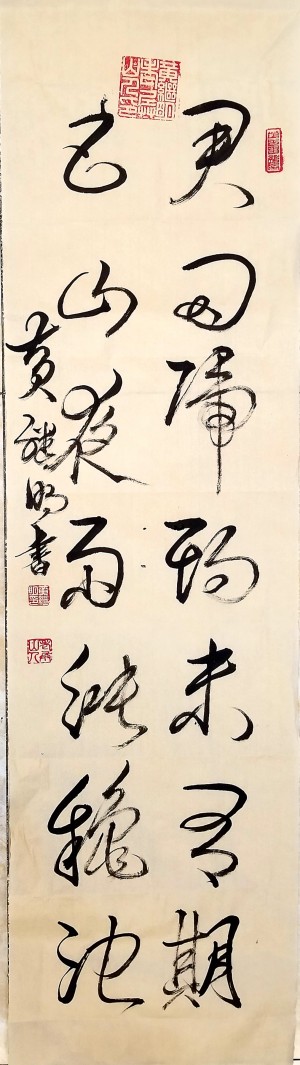 君问歸期未有期
巴山夜雨漲龝池
黄継明書